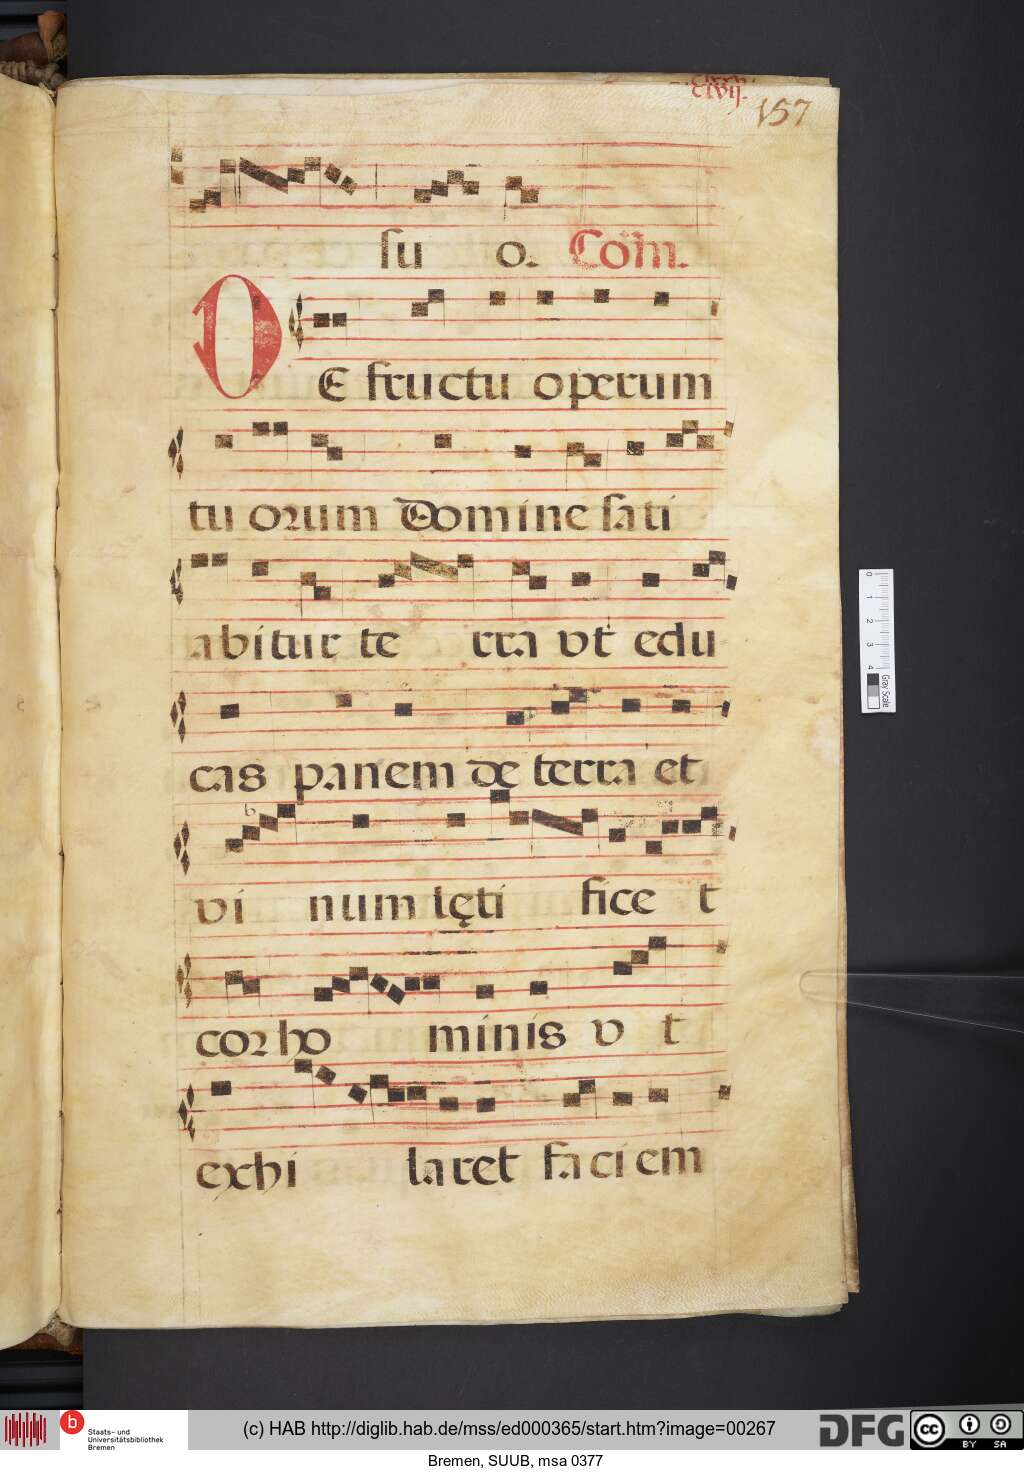 clvij.
157
su o. Com̄.
DE fructu operum
tu orum Domine sati
abitur te rra vt edu
cas panem de terra et
vi num lęti fice t
cor ho minis v t
exhi laret faciem
0 1 2 3 4 Gray Scale
b Staats- und Universitätsbibliothek Bremen
(c) HAB http://diglib.hab.de/mss/ed000365/start.htm?image=00267
DFG cc BY SA
Bremen, SUUB, msa 0377